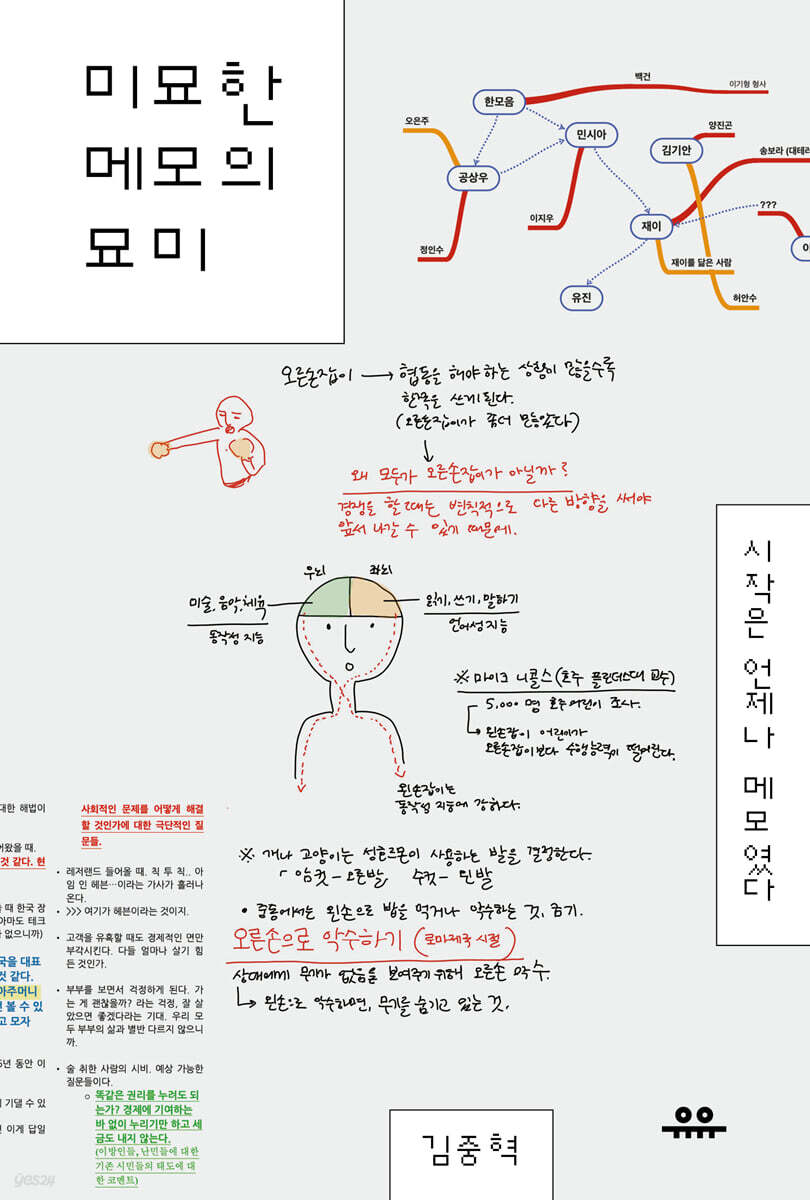 미묘한
메모의
묘미
백건
이기형 형사
한모음
오은주
민시아
양진곤
김기안
송보라 (대테러
공상우
이지우
재이
???
정인수
재이를 닮은 사람
유진
허안수
오른손잡이 → 협동을 해야 하는 상황이 많을수록
한쪽을 쓰게 된다.
(오른손잡이가 좀더 많았다)
왜 모두가 오른손잡이가 아닐까?
경쟁을 할 때는 변칙적으로 다른 방향을 써야
앞서 나갈 수 있기 때문에.
우뇌 좌뇌
미술, 음악, 체육
동작성 지능
읽기, 쓰기, 말하기
언어성 지능
※ 마이크 니콜스 (호주 플린더스대 교수)
5,000 명 호주 어린이 조사.
왼손잡이 어린이가
오른손잡이보다 수행능력이 떨어진다.
왼손잡이는
동작성 지능에 강하다.
시작은 언제나 메모였다
※ 개나 고양이는 성호르몬이 사용하는 발을 결정한다.
암컷 - 오른발, 수컷 - 왼발
• 중동에서는 왼손으로 밥을 먹거나 악수하는 것, 금기.
오른손으로 악수하기 (로마제국 시절)
상대에게 무기가 없음을 보여주기 위해 오른손 악수.
왼손으로 악수하면, 무기를 숨기고 있는 것.
대한 해법이
어왔을 때.
것 같다. 현
때 한국 장
아마도 테크
없으니까)
국을 대표
것 같다.
아주머니
볼 수 있
고 모자
년 동안 이
기댈 수 있
이게 답일
사회적인 문제를 어떻게 해결
할 것인가에 대한 극단적인 질
문들.
• 레저랜드 들어올 때. 칙 투 칙.. 아
임 인 헤븐…이라는 가사가 흘러나
온다.
• >>> 여기가 헤븐이라는 것이지.
• 고객을 유혹할 때도 경제적인 면만
부각시킨다. 다들 얼마나 살기 힘
든 것인가.
• 부부를 보면서 걱정하게 된다. 가
는 게 괜찮을까? 라는 걱정, 잘 살
았으면 좋겠다라는 기대. 우리 모
두 부부의 삶과 별반 다르지 않으니
까.
• 술 취한 사람의 시비. 예상 가능한
질문들이다.
○ 똑같은 권리를 누려도 되
는가? 경제에 기여하는
바 없이 누리기만 하고 세
금도 내지 않는다.
(이방인들, 난민들에 대한
기존 시민들의 태도에 대
한 코멘트)
김중혁
yes24